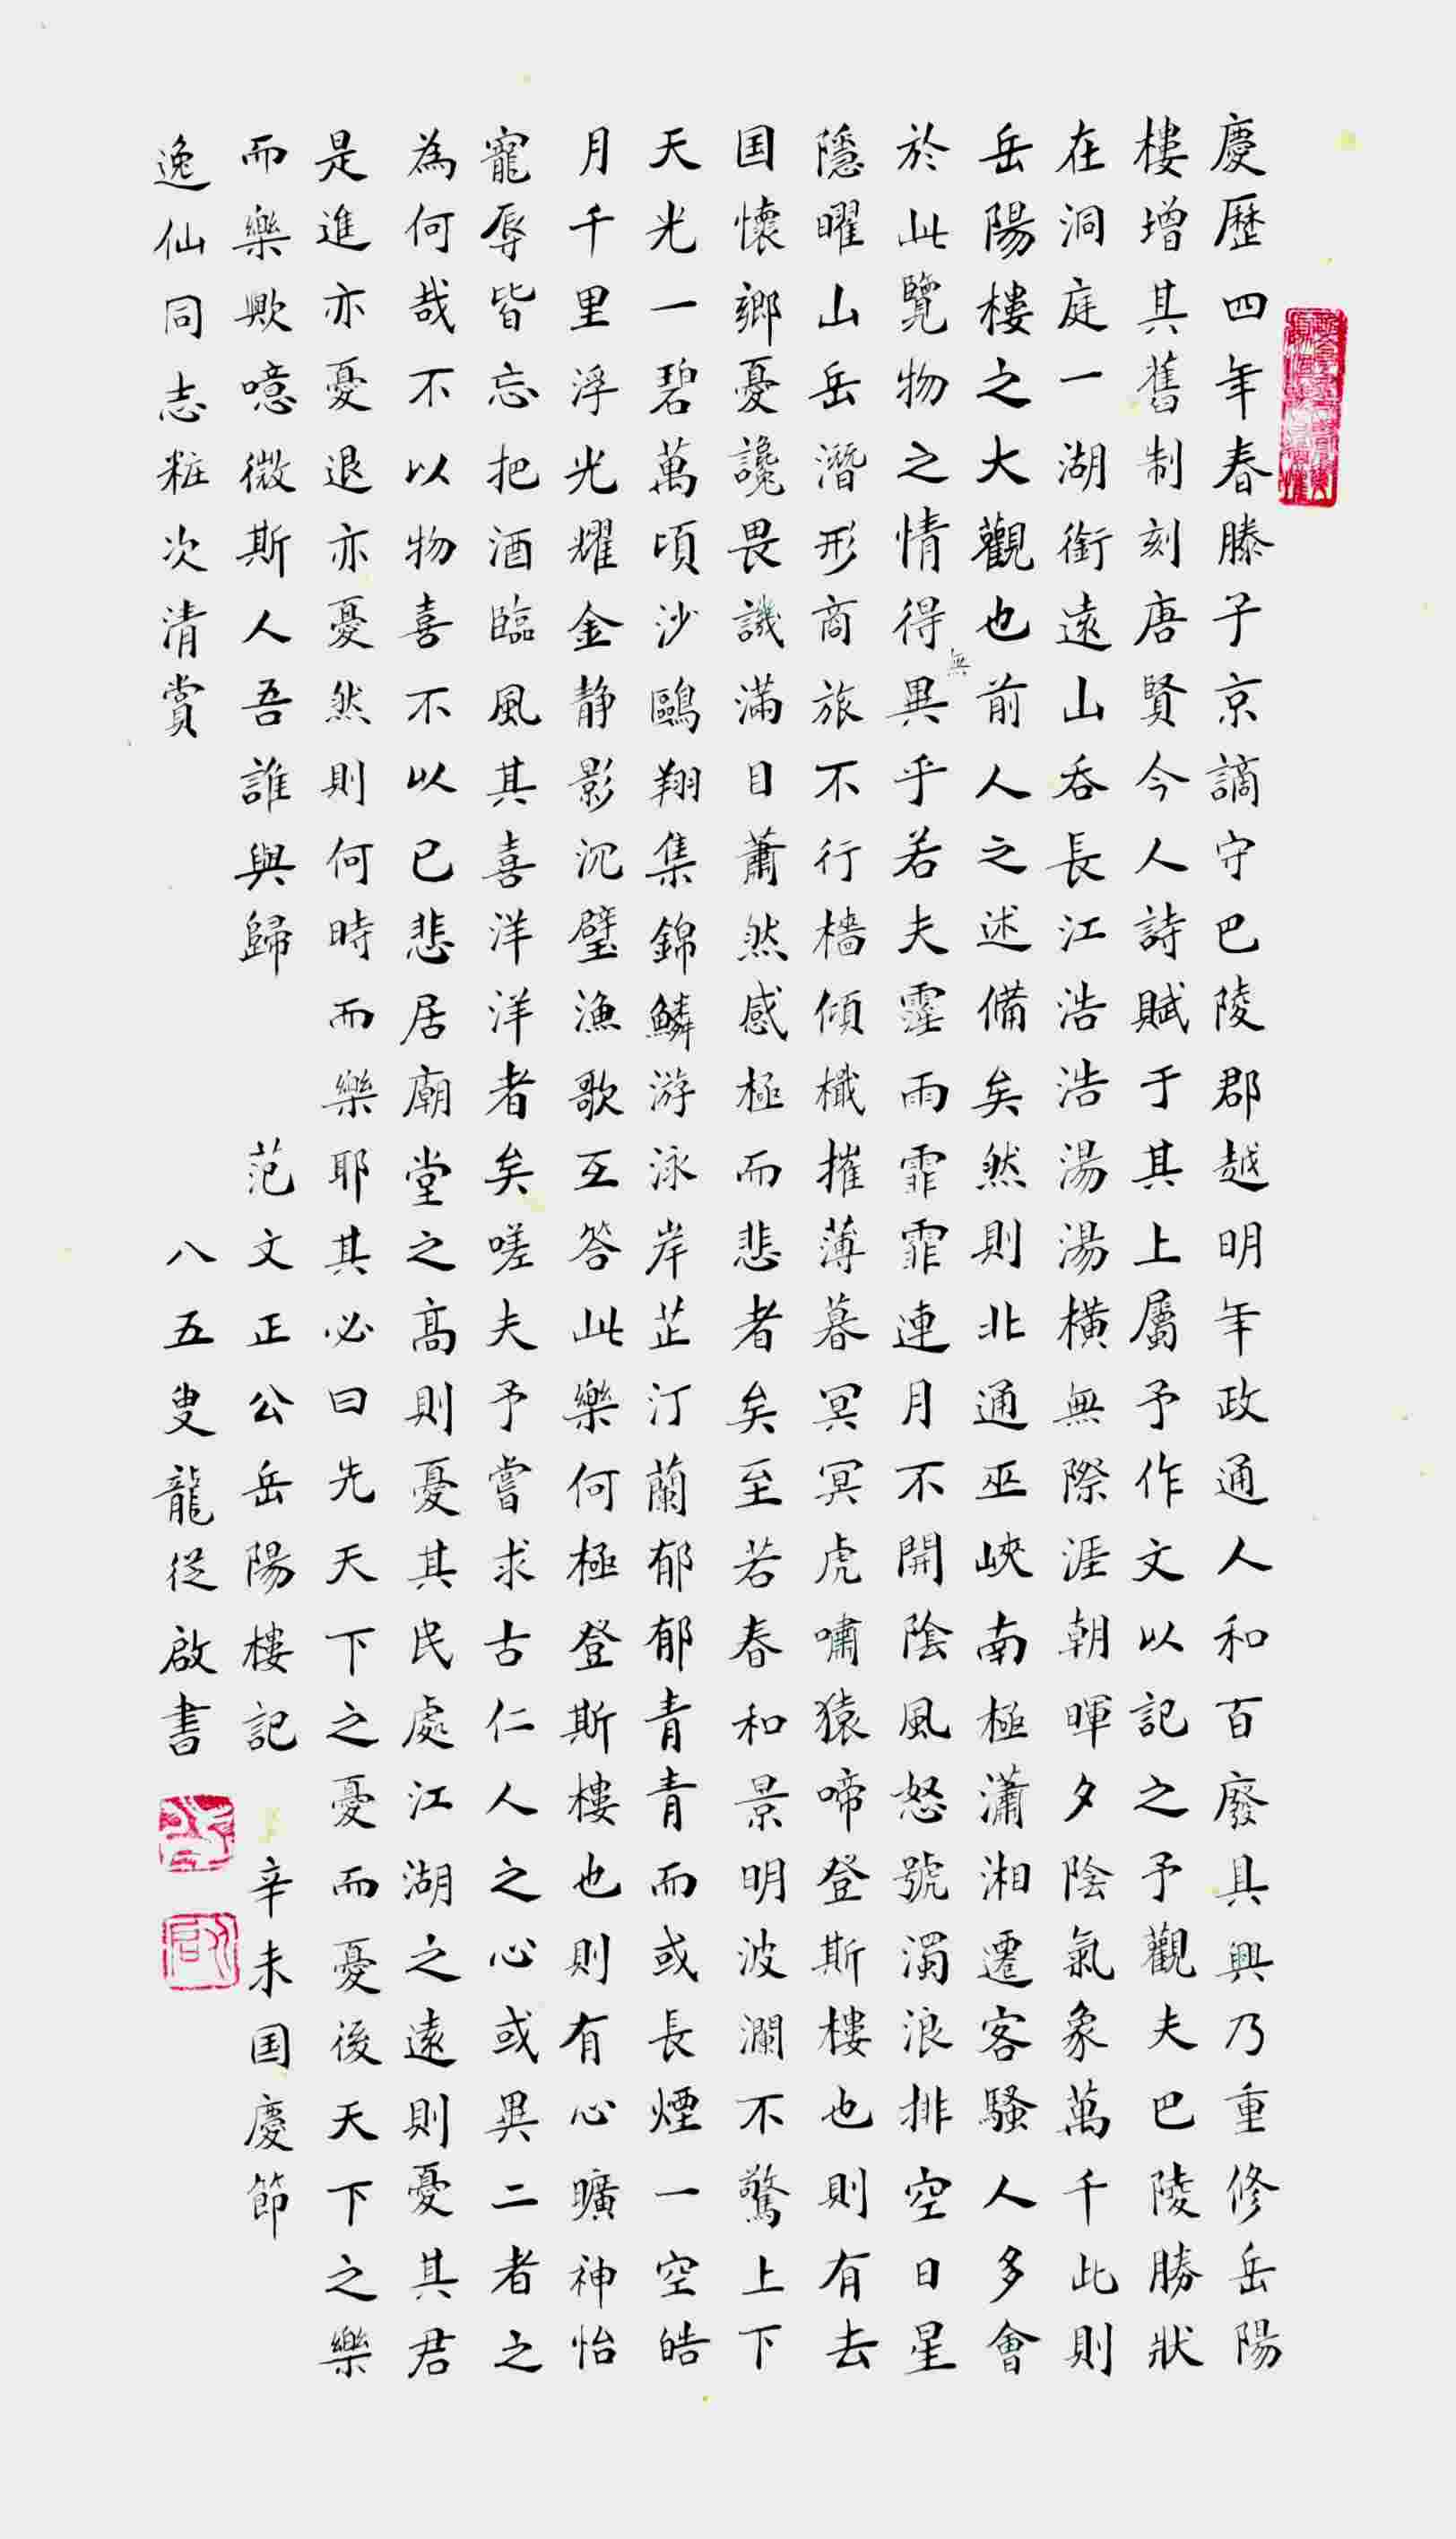 慶歷四年春滕子京謫守巴陵郡越明年政通人和百廢具興乃重修岳陽
樓增其舊制刻唐賢今人詩賦于其上屬予作文以記之予觀夫巴陵勝狀
在洞庭一湖銜遠山吞長江浩浩湯湯橫無際涯朝暉夕陰氣象萬千此則
岳陽樓之大觀也前人之述備矣然則北通巫峽南極瀟湘遷客騷人多會
於此覽物之情得無異乎若夫霪雨霏霏連月不開陰風怒號濁浪排空日星
隱曜山岳潛形商旅不行檣傾檝摧薄暮冥冥虎嘯猿啼登斯樓也則有去
国懷鄉憂讒畏譏滿目蕭然感極而悲者矣至若春和景明波瀾不驚上下
天光一碧萬頃沙鷗翔集錦鱗游泳岸芷汀蘭郁郁青青而或長煙一空皓
月千里浮光耀金静影沉璧漁歌互答此樂何極登斯樓也則有心曠神怡
寵辱皆忘把酒臨風其喜洋洋者矣嗟夫予嘗求古仁人之心或異二者之
為何哉不以物喜不以已悲居廟堂之高則憂其民處江湖之遠則憂其君
是進亦憂退亦憂然則何時而樂耶其必曰先天下之憂而憂後天下之樂
而樂歟噫微斯人吾誰與歸 范文正公岳陽樓記 辛未国慶節
逸仙同志粧次清賞 八五叟龍从啟書